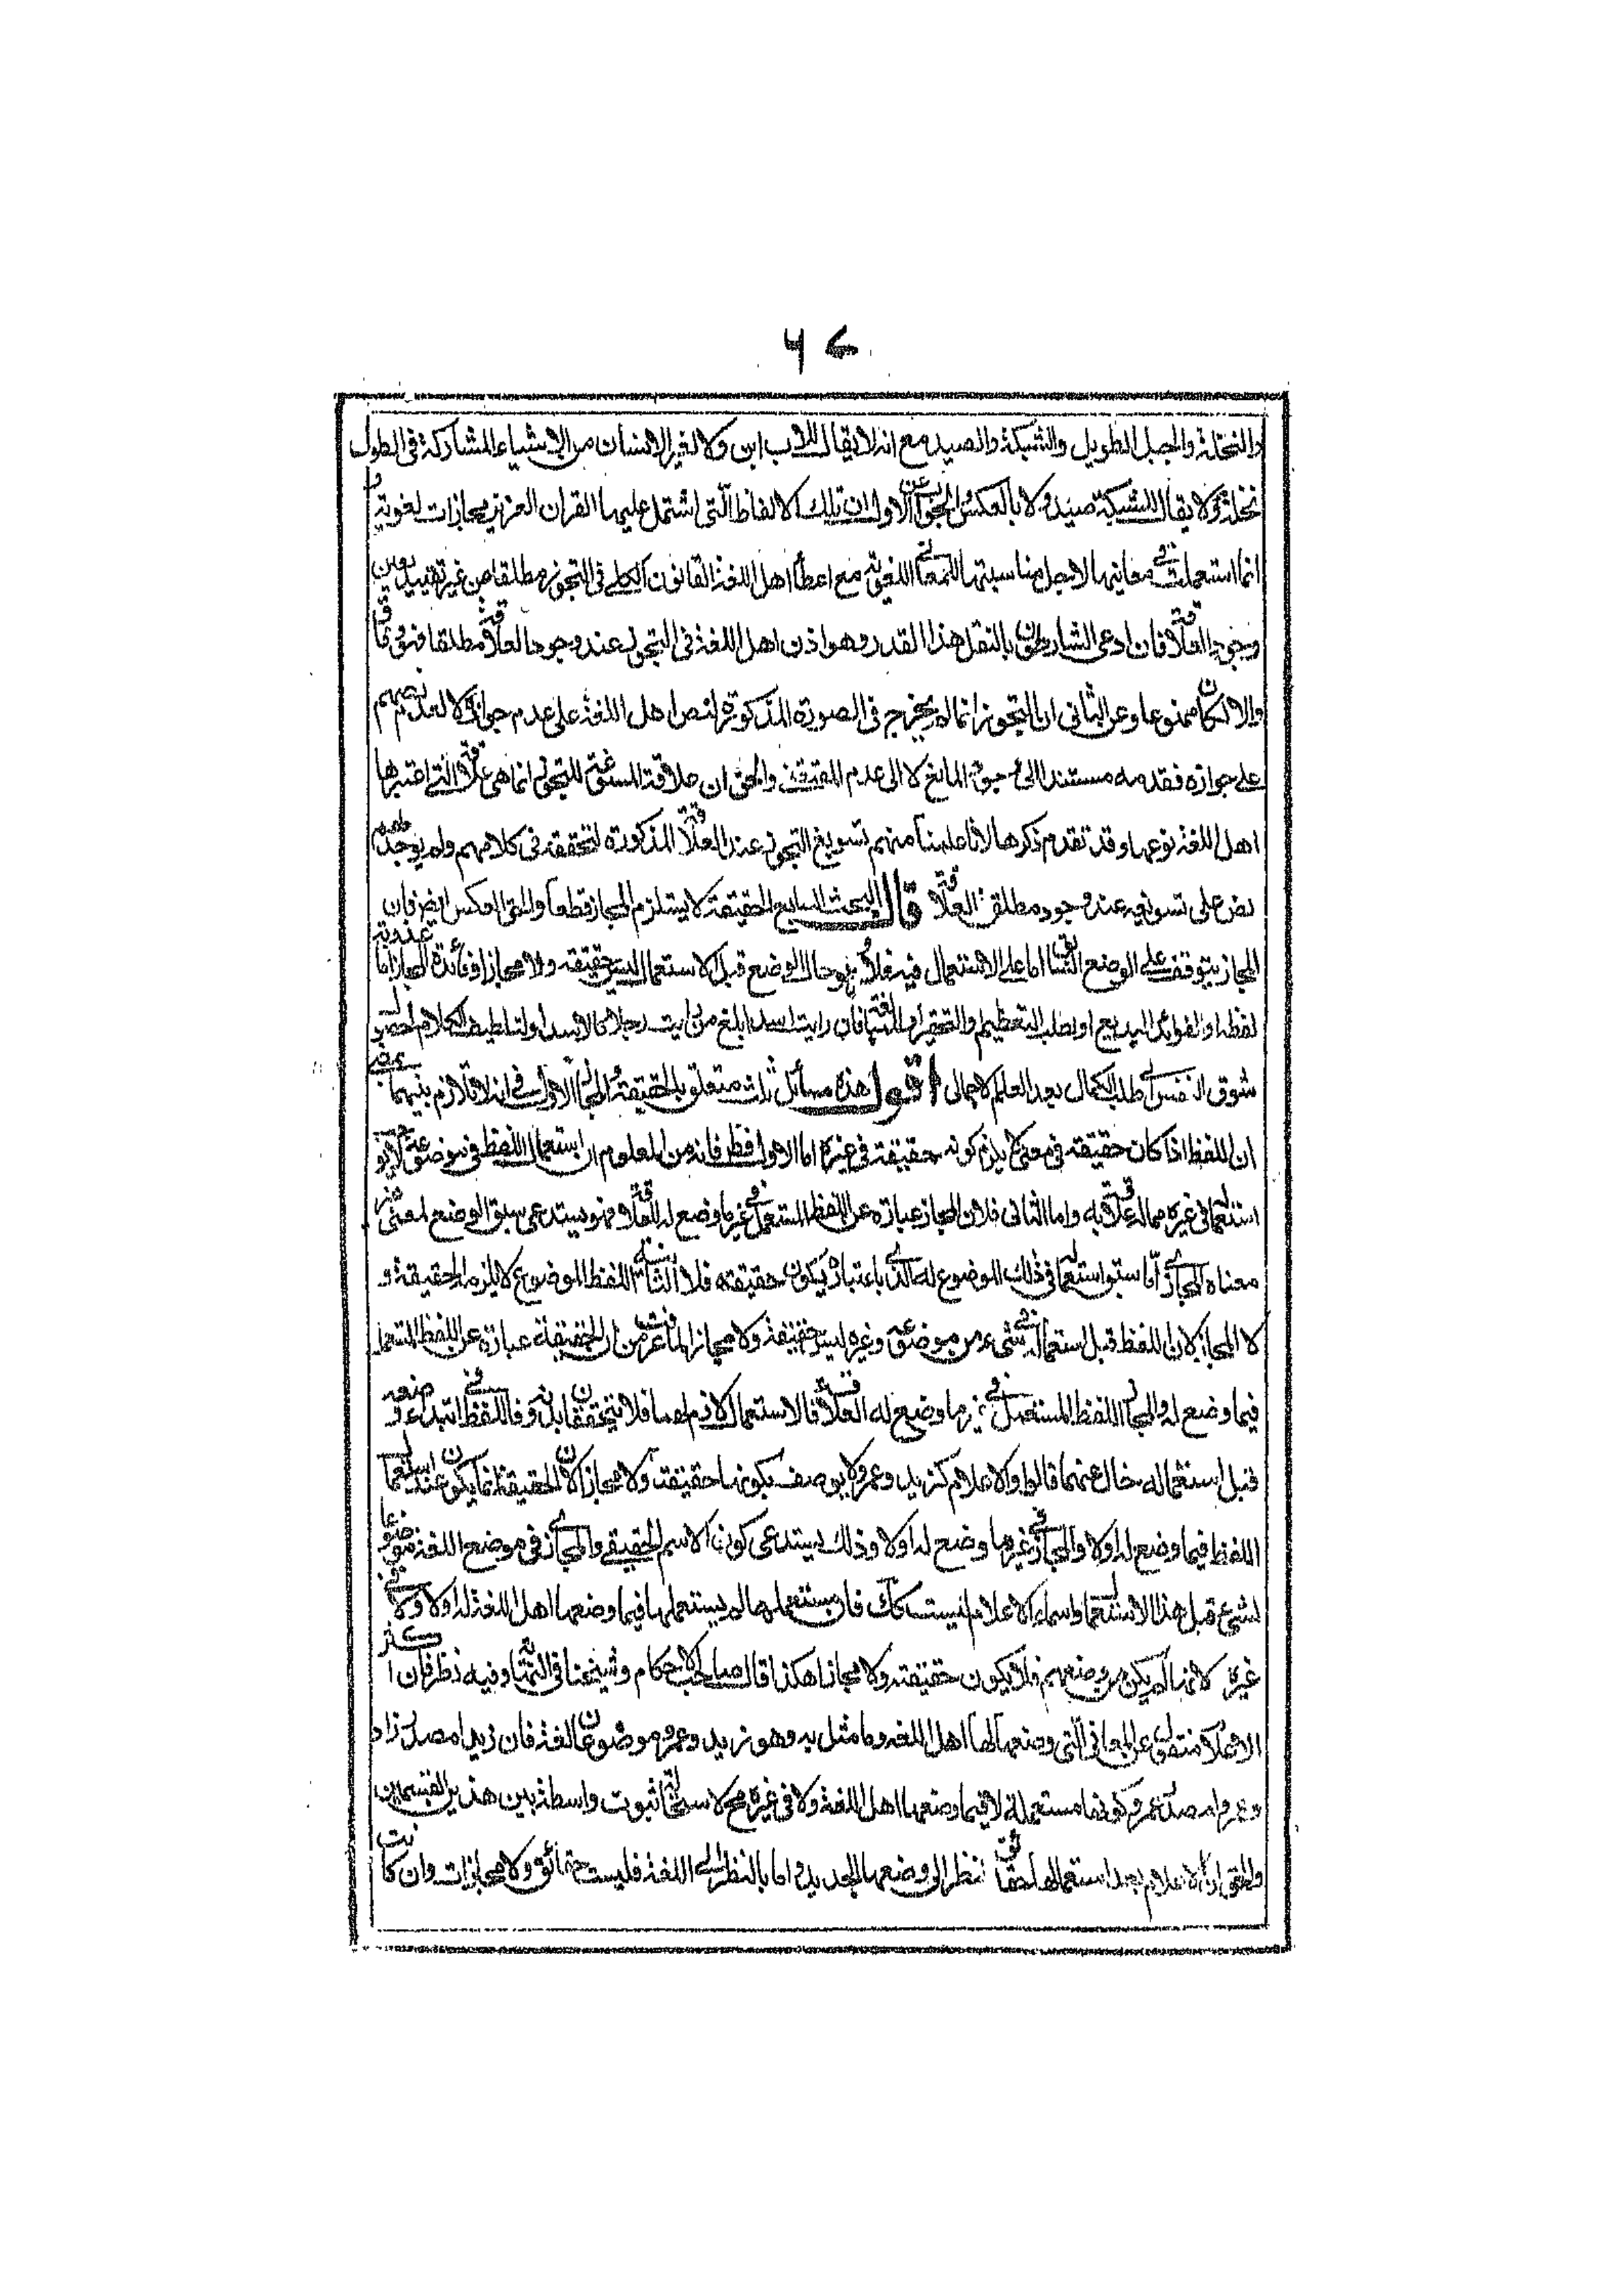 ٦٧
والنخلة والجبل الطويل والشبكة والصيد مع انه لا يقال للاب ابن ولا لغير الانسان من الاشياء المشاركة فى الطول
نخلة ولا يقال للشبكة صيد ولا بالعكس والجواب عن الاول ان تلك الالفاظ التى اشتمل عليها القران العزيز مجازات لغوية و
انما استعملت فى معانيها لاجل مناسبتها للمعانى اللغوية مع اعطاء اهل اللغة القانون الكلى فى التجوز مطلقا من غير تقييد بعين
وجود العلاقة فان ادعى الشارطون بالنقل هذا القدر وهو اذن اهل اللغة فى التجوز عند وجود العلاقة مطلقا فهو وفاق
والا لكان ممنوعا وعن الثانى ان التجوز انما لم يخرج فى الصورة المذكورة لنص اهل اللغة على عدم جوازه لا لعدم نصهم
على جوازه فعدمه مستند الى وجود المانع لا الى عدم المقتضى والحق ان علاقة المسوغة للتجوز انما هى علاقة التى اعتبرها
اهل اللغة نوعها وقد تقدم ذكرها لانا علمنا منهم تسويغ التجوز عند العلاقة المذكورة لتحققه فى كلامهم ولم يوجد منهم
نص على تسويغه عند وجود مطلق العلاقة قال البحث السابع الحقيقة لا يستلزم المجاز قطعا والحق العكس ايضا فان
المجاز يتوقف على الوضع السابق اما على الاستعمال فيه فلا وهو حال الوضع قبل الاستعمال ليس حقيقة ولا مجازا وفائدة المجاز اما عذوبة
لفظه او لفوائد البديع او لطلب التعظيم والتحقير او للمبالغة فان رايت اسدا ابلغ من رايت رجلا كالاسد او لتلطيف الكلام لحصول
شوق النفس الى طلب الكمال بعد العلم الاجمالى اقول هذه مسائل ثلث متعلق بالحقيقة والمجاز الاولى فى انه لا تلازم بينهما بمعنى
ان اللفظ اذا كان حقيقة فى معنى لا يلزم كونه حقيقة فى غيره اما الاول فظ فانه من المعلوم ان استعمال اللفظ فى موضوعه لا يوجب
استعماله فى غيره مما له علاقة به واما الثانى فلان المجاز عبارة عن اللفظ المستعمل فى غير ما وضع له للعلاقة فهو يستدعى سبق الوضع لمعنى غير
معناه المجازى اما سبق استعماله فى ذلك الموضوع له الذى باعتباره يكون حقيقة فلا الثانية اللفظ الموضوع لا يلزمه الحقيقة و
لا المجاز لان اللفظ قبل استعماله فى شىء من موضوعه وغيره ليس حقيقة ولا مجازا لما عرفت من ان الحقيقة عبارة عن اللفظ المستعمل
فيما وضع له والمجاز اللفظ المستعمل فى غير ما وضع له العلاقة فالاستعمال لازم لهما فلا يتحققان بدونه فاللفظ فى ابتداء وضعه و
قبل استعماله خال عنهما قالوا والاعلام كزيد وعمرو لا يوصف بكونها حقيقة ولا مجازا لان الحقيقة انما يكون عند استعمال
اللفظ فيما وضع له اولا والمجاز فى غير ما وضع له اولا وذلك يستدعى كون الاسم الحقيقى والمجازى فى موضع اللغة موضوعا
لشىء قبل هذا الاستعمال واسماء الاعلام ليست كك فان مستعملها لم يستعملها فيما وضعها اهل اللغة له اولا ولا فى
غيره لانها لم يكن من وضعهم فلا يكون حقيقة ولا مجازا هكذا قال صاحب الاحكام وشيخنا فى النهاية وفيه نظر فان اكثر
الاعلام منقول عن المعانى التى وضعها لها اهل اللغة وما مثل به وهو زيد وعمرو موضوعان لغة فان زيدا مصدر زاد
وعمرو مصدر عمر وكونهما مستعملة لا فيما وضعها اهل اللغة ولا فى غيره مح لاستحالة ثبوت واسطة بين هذين القسمين
والحق ان الاعلام بعد استعمالها حقائق نظرا الى وضعها الجديد واما بالنظر الى اللغة فليست حقائق ولا مجازات وان كانت